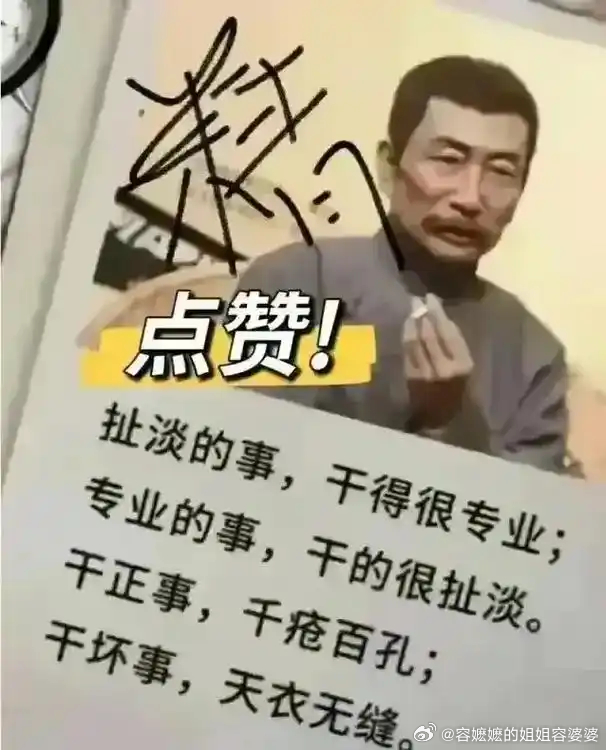 点赞!
扯淡的事，干得很专业；
专业的事，干的很扯淡。
干正事，千疮百孔；
干坏事，天衣无缝。
@容嬷嬷的姐姐容婆婆